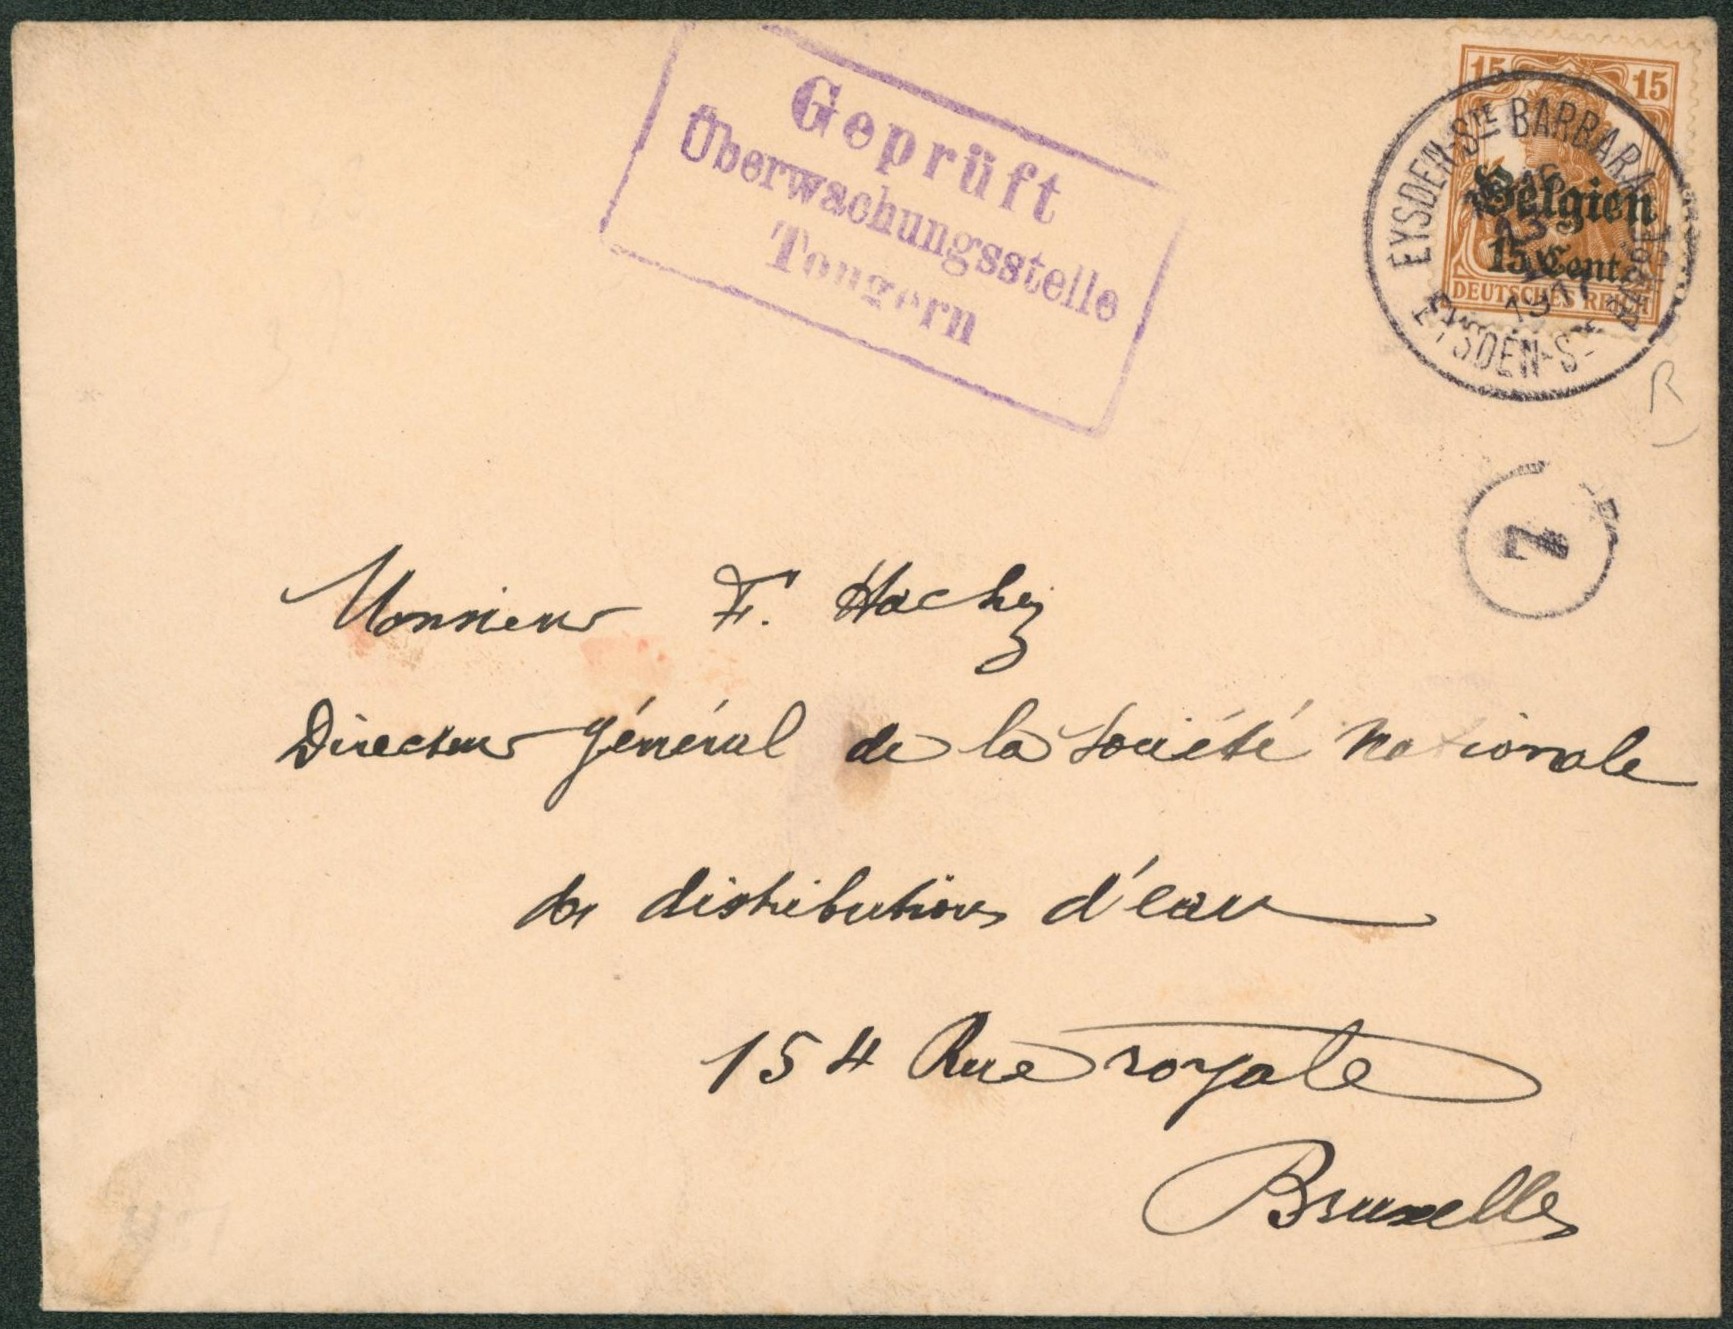 Geprüft
Überwachungsstelle
Tongern
15 15
Belgien
15 Cent.
DEUTSCHES REICH
EYSDEN-STE BARBARA
EYSDEN-S
1917
Monsieur F. Hachez
Directeur Général de la Société Nationale
des distributions d'eau
154 Rue royale
Bruxelles